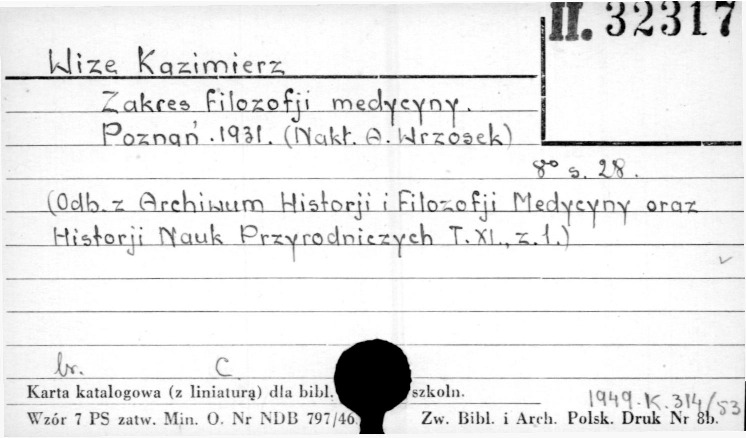 II. 32317
Wize Kazimierz
Zakres filozofji medycyny.
Poznań. 1931. (Nakł. A. Wrzosek)
8° s. 28.
(Odb. z Archiwum Historji i Filozofji Medycyny oraz
Historji Nauk Przyrodniczych T. XI., z. 1.)
br. C
Karta katalogowa (z liniaturą) dla bibl. szkoln.
1949. K. 314/53
Wzór 7 PS zatw. Min. O. Nr NDB 797/46 Zw. Bibl. i Arch. Polsk. Druk Nr 8b.